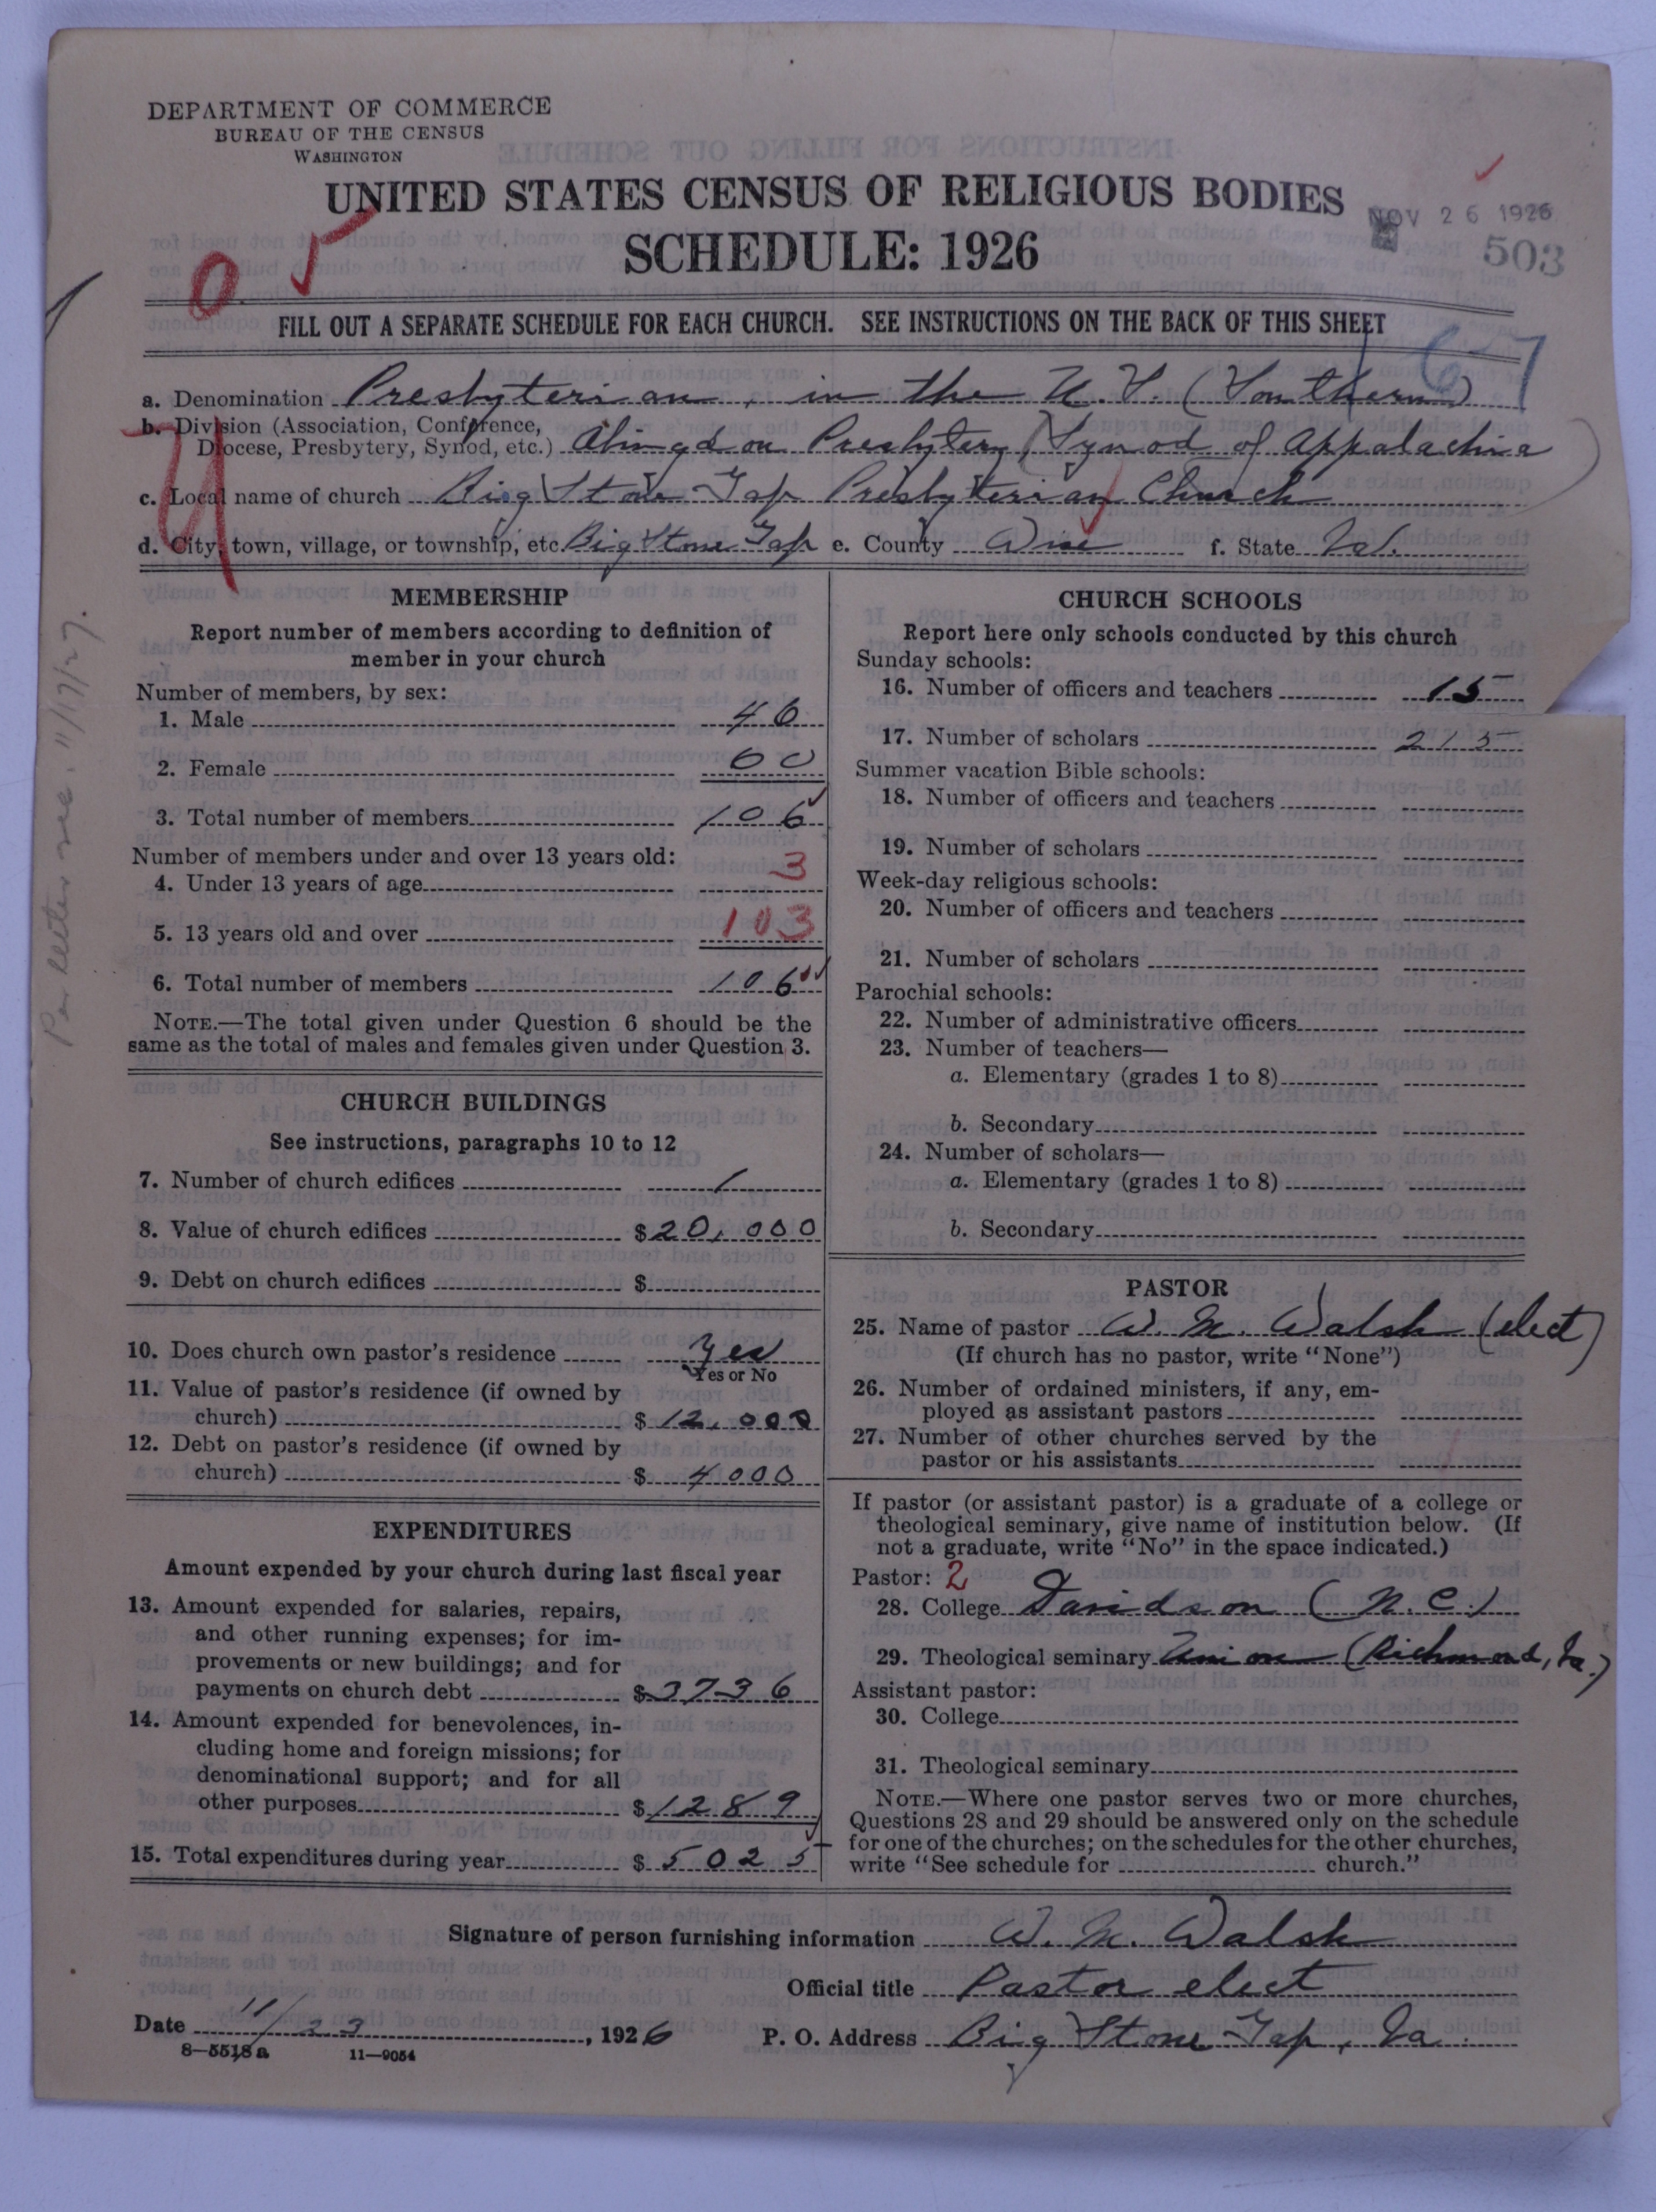 DEPARTMENT OF COMMERCE
BUREAU OF THE CENSUS
WASHINGTON
UNITED STATES CENSUS OF RELIGIOUS BODIES
SCHEDULE: 1926
NOV 26 1926
503
05
FILL OUT A SEPARATE SCHEDULE FOR EACH CHURCH. SEE INSTRUCTIONS ON THE BACK OF THIS SHEET
a. Denomination Presbyterian, in the U.S. (Southern)
b. Division (Association, Conference,
Diocese, Presbytery, Synod, etc.) Abingdon Presbytery (Synod of Appalachia)
c. Local name of church Big Stone Gap Presbyterian Church
d. City, town, village, or township, etc. Big Stone Gap e. County Wise f. State Va.
MEMBERSHIP
Report number of members according to definition of
member in your church
Number of members, by sex:
1. Male 46
2. Female 60
3. Total number of members 106
Number of members under and over 13 years old:
4. Under 13 years of age 3
5. 13 years old and over 103
6. Total number of members 106
NOTE.—The total given under Question 6 should be the
same as the total of males and females given under Question 3.
Per letter rec. 11/17/27.
CHURCH BUILDINGS
See instructions, paragraphs 10 to 12
7. Number of church edifices 1
8. Value of church edifices $20,000
9. Debt on church edifices $
10. Does church own pastor's residence Yes
Yes or No
11. Value of pastor's residence (if owned by
church) $12,000
12. Debt on pastor's residence (if owned by
church) $4000
EXPENDITURES
Amount expended by your church during last fiscal year
13. Amount expended for salaries, repairs,
and other running expenses; for im-
provements or new buildings; and for
payments on church debt $3736
14. Amount expended for benevolences, in-
cluding home and foreign missions; for
denominational support; and for all
other purposes $1289
15. Total expenditures during year $5025
CHURCH SCHOOLS
Report here only schools conducted by this church
Sunday schools:
16. Number of officers and teachers 15
17. Number of scholars 215
Summer vacation Bible schools:
18. Number of officers and teachers
19. Number of scholars
Week-day religious schools:
20. Number of officers and teachers
21. Number of scholars
Parochial schools:
22. Number of administrative officers
23. Number of teachers—
a. Elementary (grades 1 to 8)
b. Secondary
24. Number of scholars—
a. Elementary (grades 1 to 8)
b. Secondary
PASTOR
25. Name of pastor W. M. Walsh (elect)
(If church has no pastor, write "None")
26. Number of ordained ministers, if any, em-
ployed as assistant pastors
27. Number of other churches served by the
pastor or his assistants
If pastor (or assistant pastor) is a graduate of a college or
theological seminary, give name of institution below. (If
not a graduate, write "No" in the space indicated.)
Pastor: 2
28. College Davidson (N.C.)
29. Theological seminary Union (Richmond, Va.)
Assistant pastor:
30. College
31. Theological seminary
NOTE.—Where one pastor serves two or more churches,
Questions 28 and 29 should be answered only on the schedule
for one of the churches; on the schedules for the other churches,
write "See schedule for church."
Signature of person furnishing information W. M. Walsh
Official title Pastor elect
Date 11/23, 1926 P. O. Address Big Stone Gap, Va.
8—5518a 11—9054